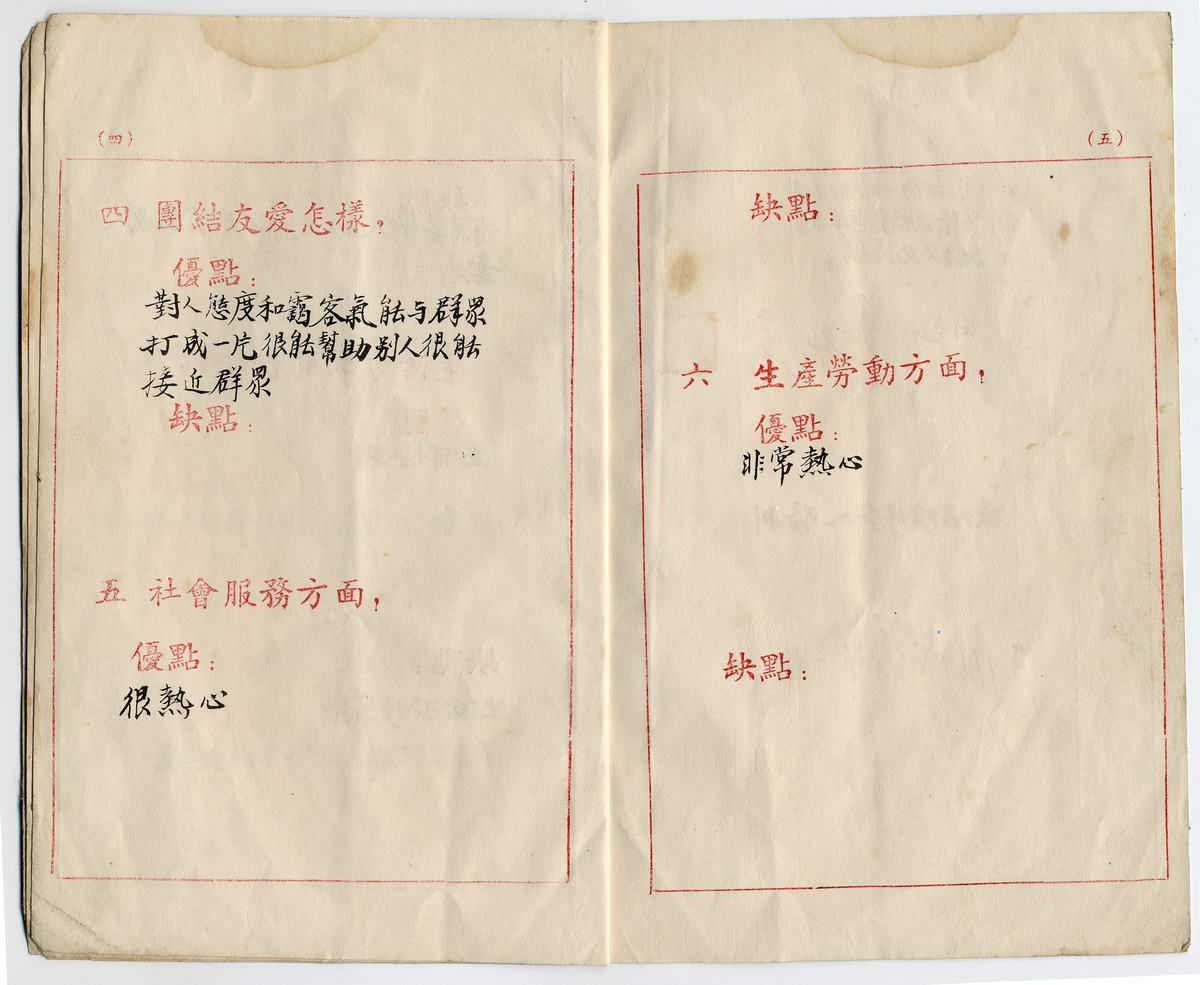 (四)
四 團結友愛怎樣，
優點：
對人態度和靄客氣能与群眾
打成一片很能幫助别人很能
接近群眾
缺點：
五 社會服務方面，
優點：
很熱心
(五)
缺點：
六 生產勞動方面，
優點：
非常熱心
缺點：